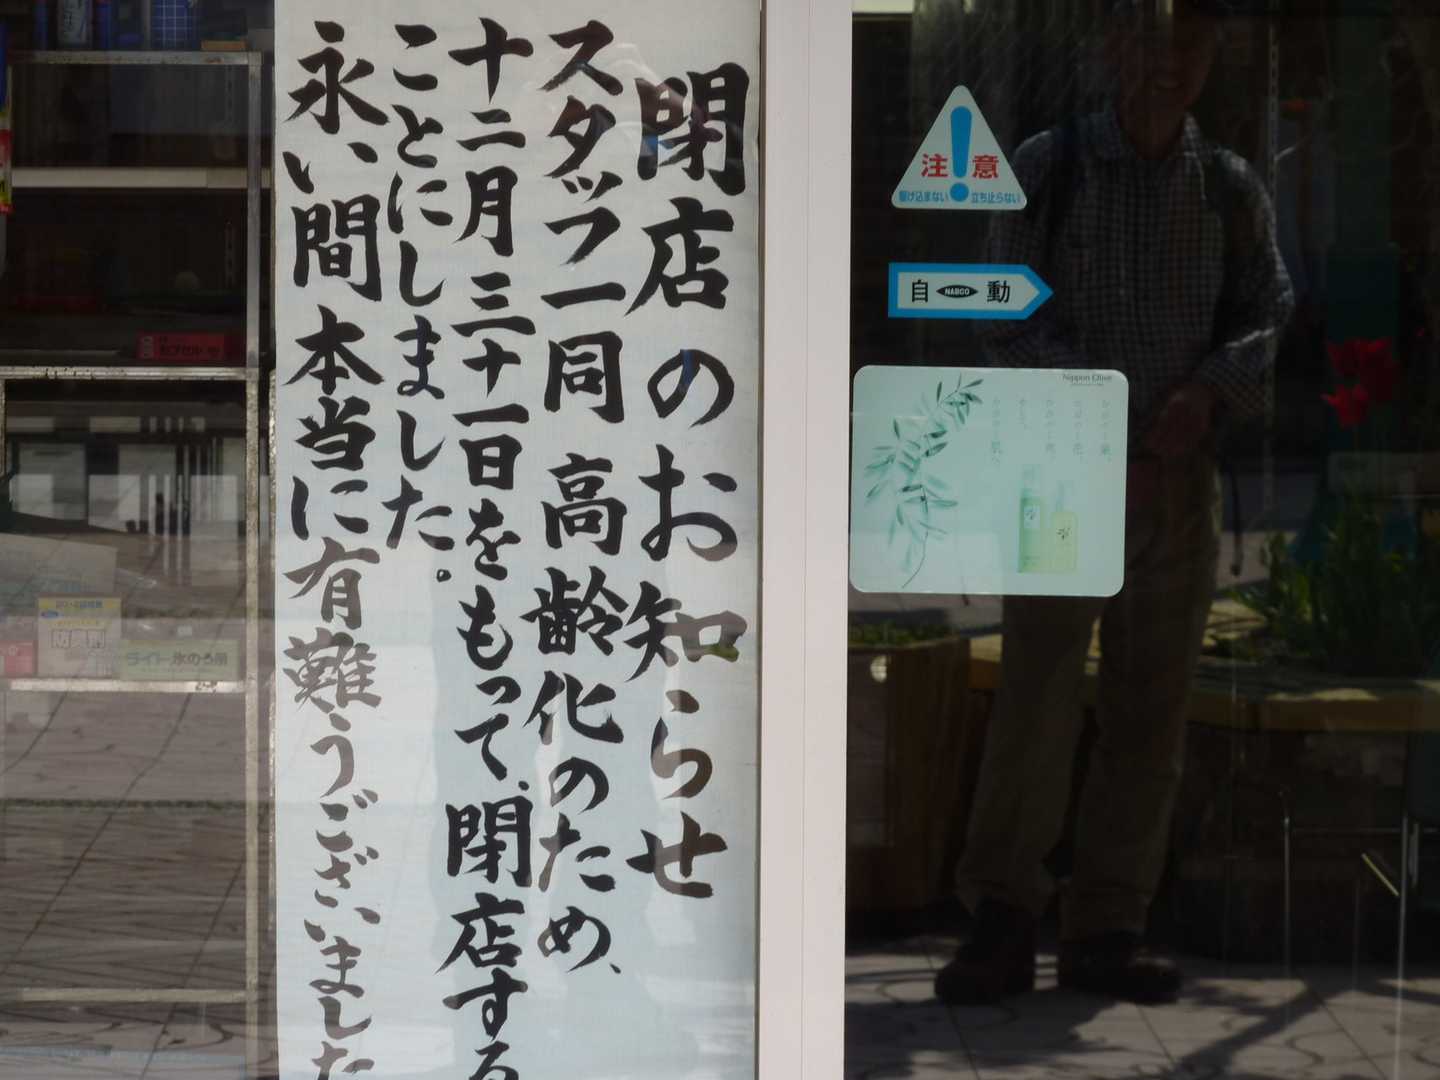 閉店のお知らせ
スタッフ一同高齢化のため、
十二月三十一日をもって、閉店する
ことにしました。
永い間本当に有難うございました
注意
駆け込まない 立ち止らない
自 NABCO 動
Nippon Olive
防臭剤